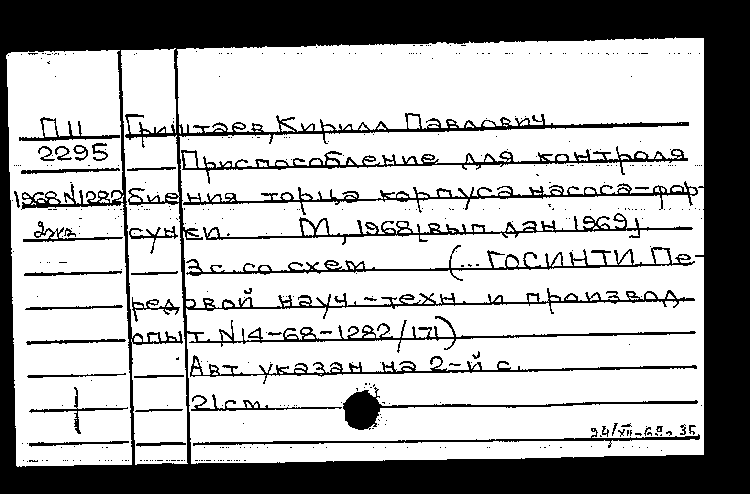 П 11 Гриштаев, Кирилл Павлович.
2295 Приспособление для контроля
1968 N1282 биения торца корпуса насоса-фор-
2экз сунки. М., 1968 [вып. дан. 1969].
3 с. со схем. (... ГОСИНТИ. Пе-
редовой науч.-техн. и производ.
опыт. N14-68-1282/171)
Авт. указан на 2-й с.
21 см.
24/XII-69 35